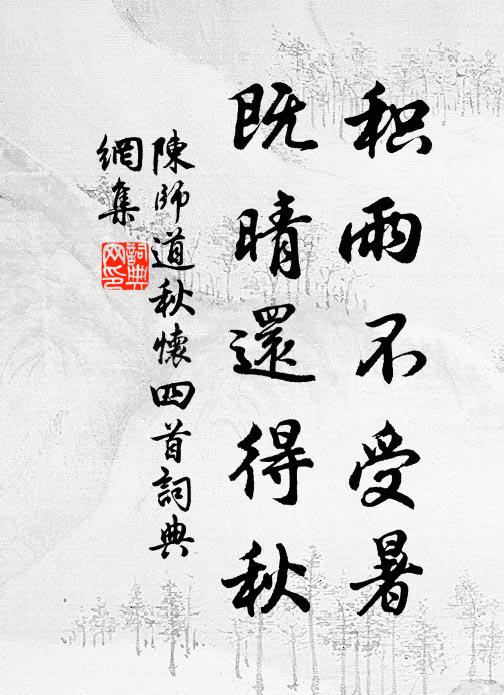 积雨不受暑
既晴還得秋
陳師道秋懷四首詞典
網集
詞典
网印